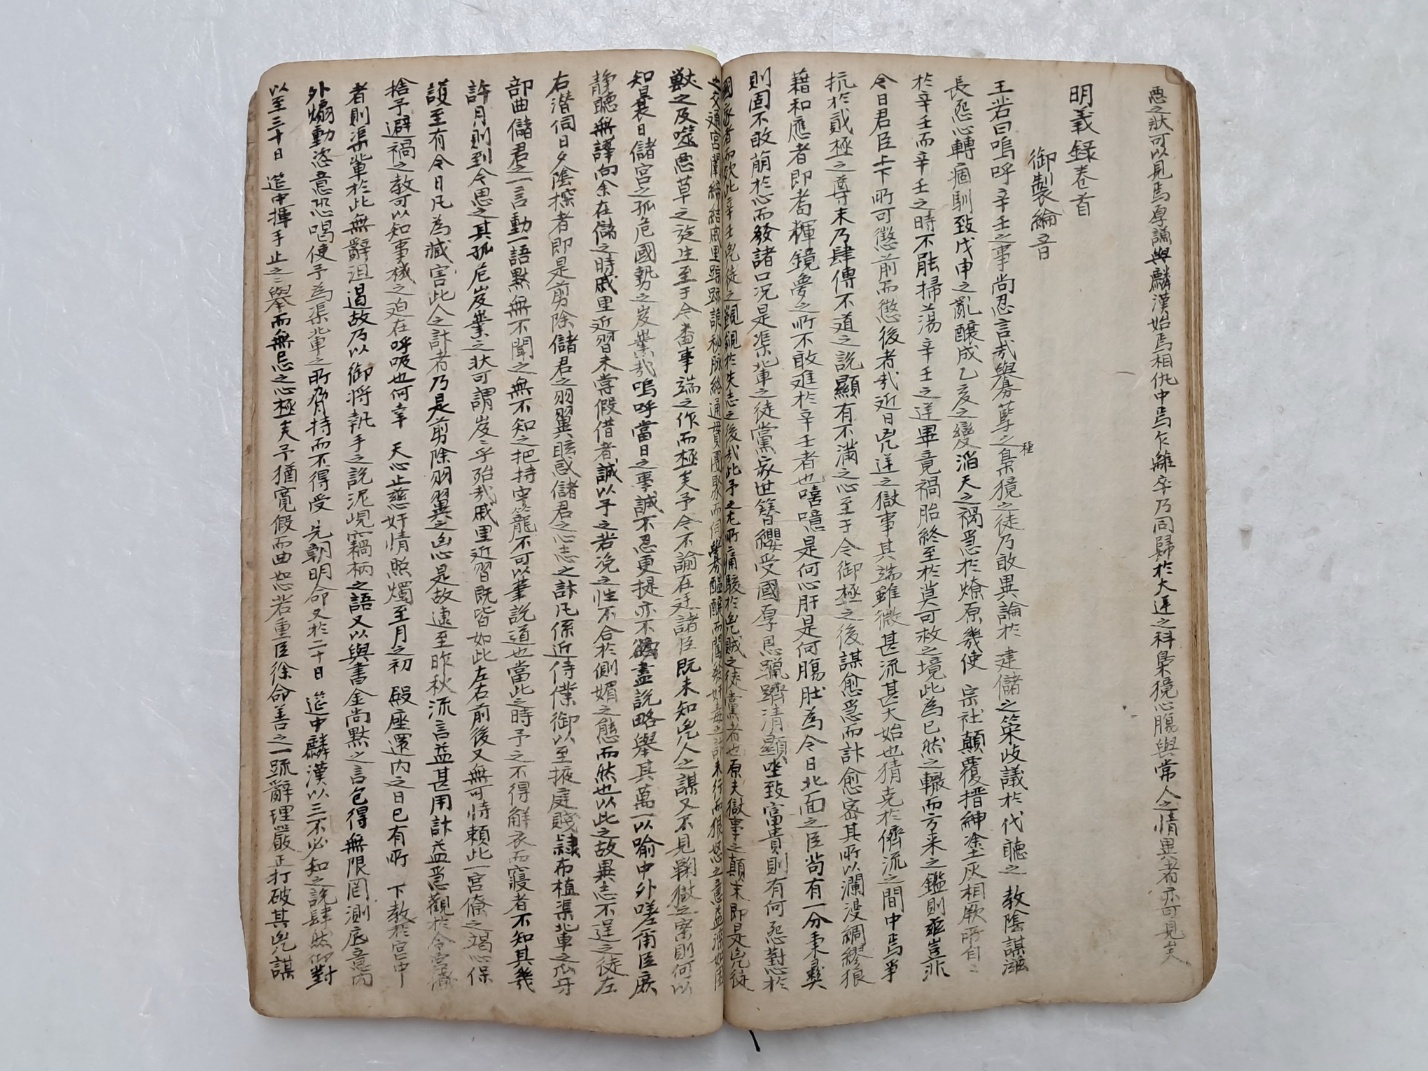 惡之狀可以見焉厚謙與麟漢始焉相仇中焉乍離卒乃同歸於大逆之科梟獍心腸與常人之情異者亦可見矣
明義錄卷首
御製綸音
王若曰嗚呼辛壬之事尚忍言哉舉夢孽之梟獍之徒乃敢異論於 建儲之策歧議於代聽之 教陰謀
種
長惡心轉痼馴致戊申之亂釀成乙亥之變滔天之禍急於燎原幾使 宗社顛覆搢紳塗土灰相厥所自
於辛壬而辛壬之時不能掃蕩辛壬之逆畢竟禍胎終至於莫可救之境此為已然之轍而方來之鑑則亟豈非
今日君臣上下所可懲前而懲後者哉近日凶逆之獄事其端雖微甚流甚大始也猜克於儕流之間中焉爭
抗於貳極之尊末乃肆傳不道之說顯有不滿之心至于今御極之後謀愈急而計愈密其所以瀾漫綢繆狼
藉和應者即耉輝鏡夢之所不敢進於辛壬者也噫噫是何心肝是何膓肚為今日北面之臣苟有一分秉彝
則固不敢萌於心而發諸口況是渠輩之徒黨家世簪纓受國厚恩躐躋清顯坐致富貴則有何惡懟於
國家者而欲此辛壬凶徒之覬覦於失志之後哉此予之尤所痛駭於凶賊之徒黨者也原夫獄事之顛末即是凶徒
之交通宮闈締結戚里
獸之反噬惡草之旋生至于今番事端之作而極矣予今不論在廷諸臣既未知凶人之謀又不見鞫獄之案則何以
知曩日儲宮之孤危國勢之岌嶪哉嗚呼當日之事誠不忍更提亦不欲盡說略舉其萬一以喻中外嗟爾臣庶
静聽無譁向余在儲之時戚里近習未嘗假借者誠以予之若浼之性不合於側媚之態而然也以此之故畢志不逞之徒左
右潛伺日夕陰探者即是剪除儲君之羽翼眩惑儲君之心志之計凡係近侍僕御以至掖庭賤隸布植渠輩之爪牙
部曲儲君之一言動一語默無不聞之無不知之把持牢籠不可以筆說道也當此之時予之不得解衣而寢者不知其幾
許月則到今思之其孤危岌嶪之狀可謂岌乎殆哉戚里近習既皆如此左右前後又無可恃賴此一宮僚之竭心保
護至有今日凡為減害此人之計者乃是剪除羽翼之凶心是故逮至昨秋流言益甚用計益急觀於令宮僚
捨予避禍之教可以知事機之迫在呼吸也何幸 天心止慈奸情照燭至月之初 殿座還內之日已有所 下教於宮中
者則渠輩於此無辭沮遏故乃以御將執手之說泥峴竊柄之語又以與書金尚默之言包得無限罔測底意內
外煽動恣意恐喝使予為渠輩之所脅持而不得受 先朝明命又於二十日 筵中麟漢以三不必知之說肆然仰對
以至三十日 筵中揮手止之舉而無忌之心極矣予猶寬假而曲恕若重臣徐命善之一疏辭理嚴正打破其凶謀